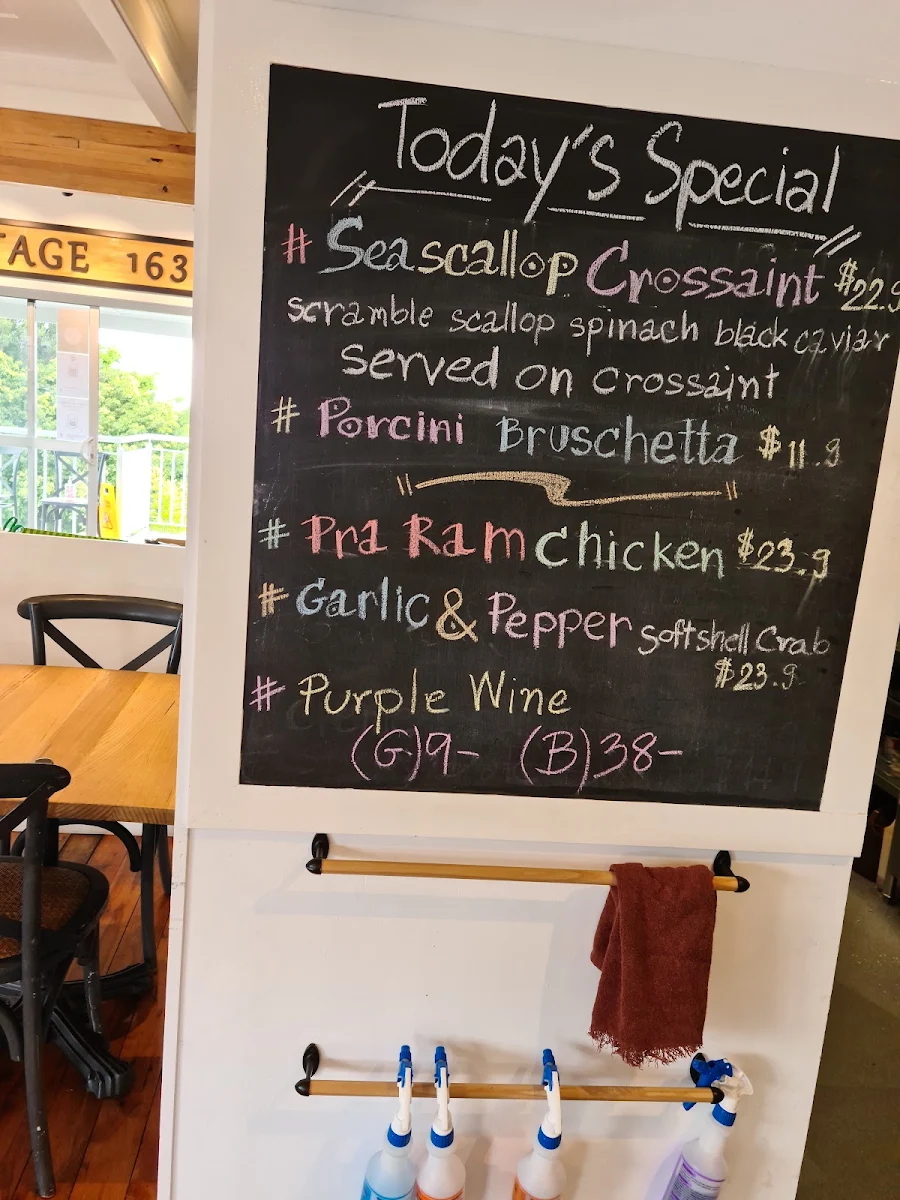 Today's Special
# Seascallop Crossaint $22.9
scramble scallop spinach black caviar
served on crossaint
# Porcini Bruschetta $11.9
# Pra Ram Chicken $23.9
# Garlic & Pepper softshell Crab
$23.9
# Purple Wine
(G)9- (B)38-
TAGE 163